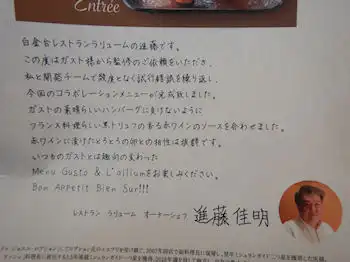 Entrée
白金台レストランラリュームの進藤です。
この度はガスト様から監修のご依頼をいただき、
私と開発チームで幾度となく試行錯誤を繰り返し、
今回のコラボレーションメニューが完成致しました。
ガストの素晴らしいハンバーグに負けないように
フランス料理らしい黒トリュフの香る赤ワインのソースを合わせました。
赤ワインに漬けたとうとうの卵との相性は抜群です。
いつものガストとは趣向の変わった
Menu Gusto & L'allium をお楽しみください。
Bon Appetit Bien Sur!!!
レストラン ラリューム オーナーシェフ 進藤佳明